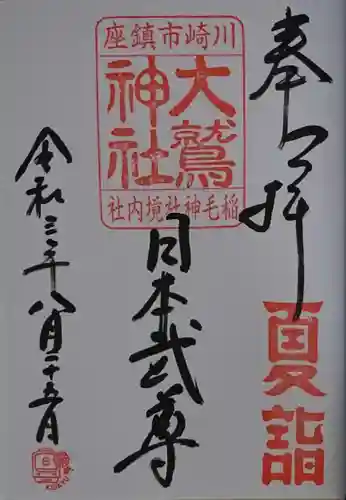 奉拝
夏詣
川崎市鎮座
大鷲神社
稲毛神社境内社
日本武尊
令和三年八月二十五日